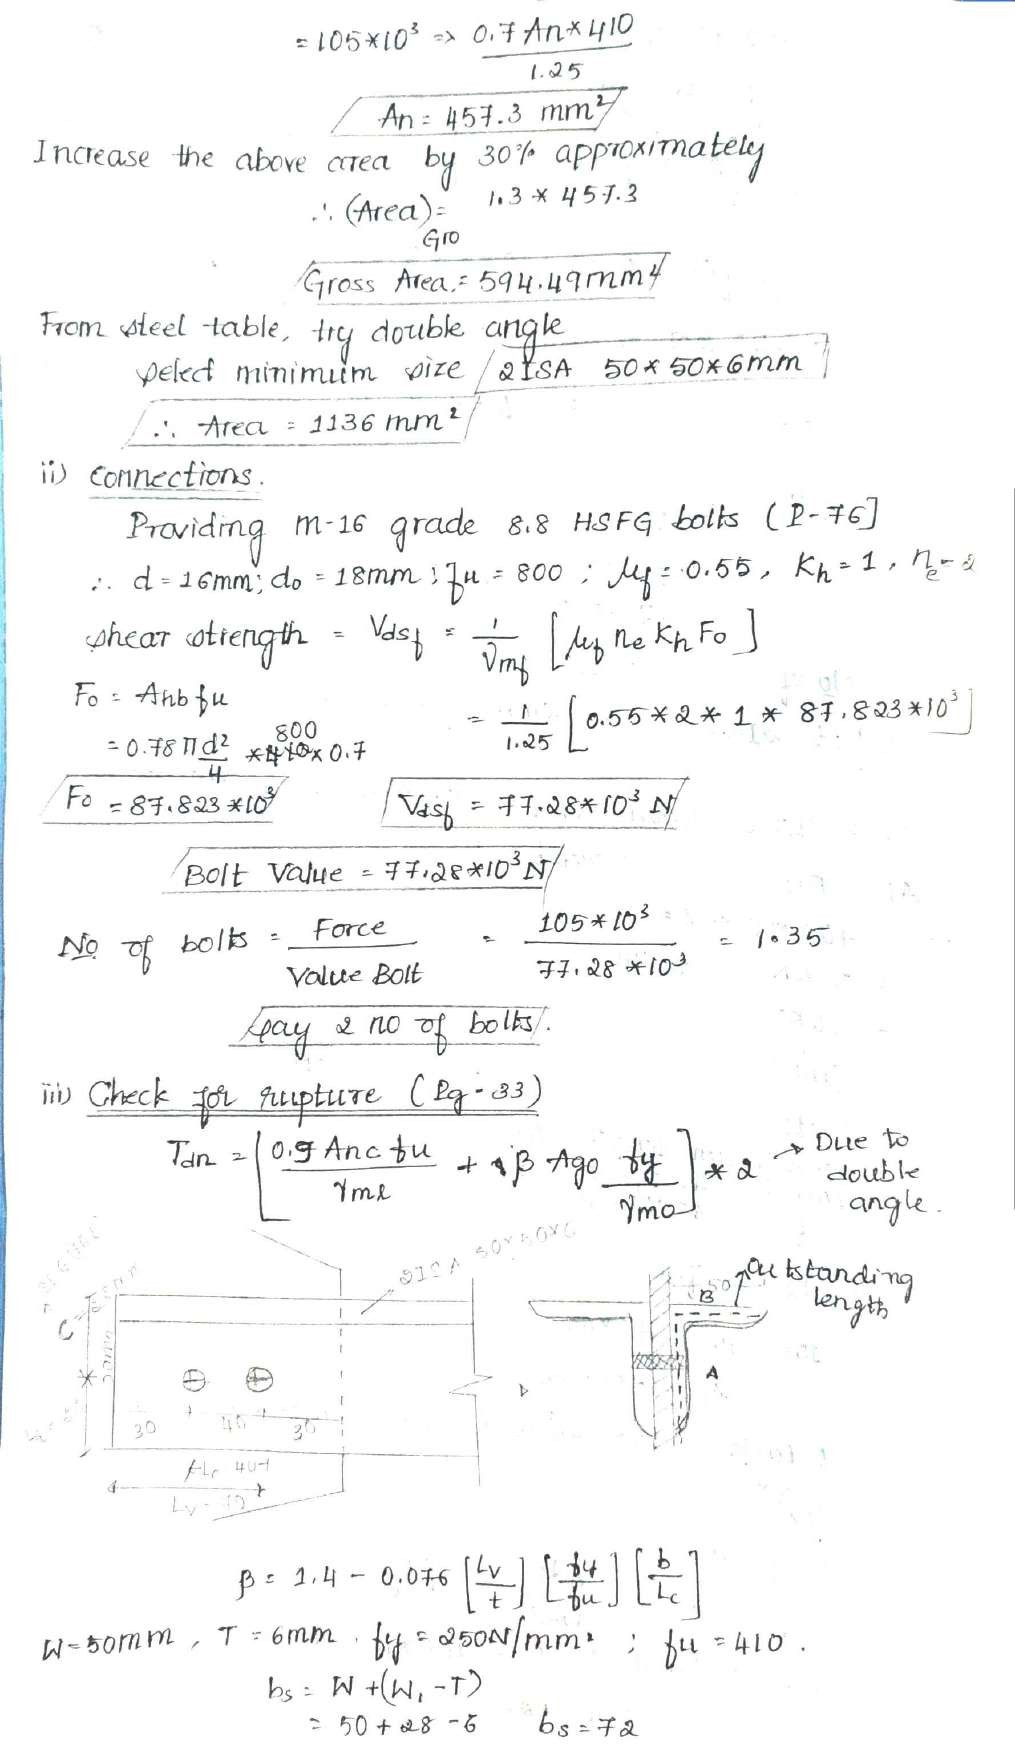 = 105*10³ => 0.7 An*410
1.25
An = 457.3 mm²
Increase the above area by 30% approximately
∴ (Area) = 1.3 * 457.3
Gro
Gross Area = 594.49mm⁴
From steel table, try double angle
select minimum size 2 ISA 50*50*6mm
∴ Area = 1136 mm²
ii) Connections.
Providing m-16 grade 8.8 HSFG bolts (P-76]
∴ d = 16mm; do = 18mm; fu = 800 ; μf = 0.55, Kh = 1, ne = 2
shear strength = Vdsf = 1/γmf [μf ne Kh Fo]
Fo = Anb fu
= 1/1.25 [0.55*2*1* 87.823*10³]
= 0.78 πd²/4 * 800 x 0.7
Fo = 87.823*10³
Vdsf = 77.28*10³ N
Bolt Value = 77.28*10³ N
No of bolts = Force / Value Bolt = 105*10³ / 77.28*10³ = 1.35
Say 2 no of bolts.
iii) Check for rupture (Pg-33)
Tdn = [0.9 Anc fu / γml + β Ago fy / γmo] * 2 → Due to
double
angle.
2ISA 50x50x6
Outstanding
length
50
B
C
A
30 40 30
Lc 40
Lv = 70
β = 1.4 - 0.076 [Lv/t] [fy/fu] [b/Lc]
W = 50mm, T = 6mm. fy = 250N/mm² ; fu = 410.
bs = W + (W₁ - T)
= 50 + 28 - 6 bs = 72